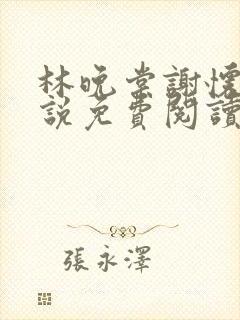 林晚棠謝懷
說免費閱讀
張永澤